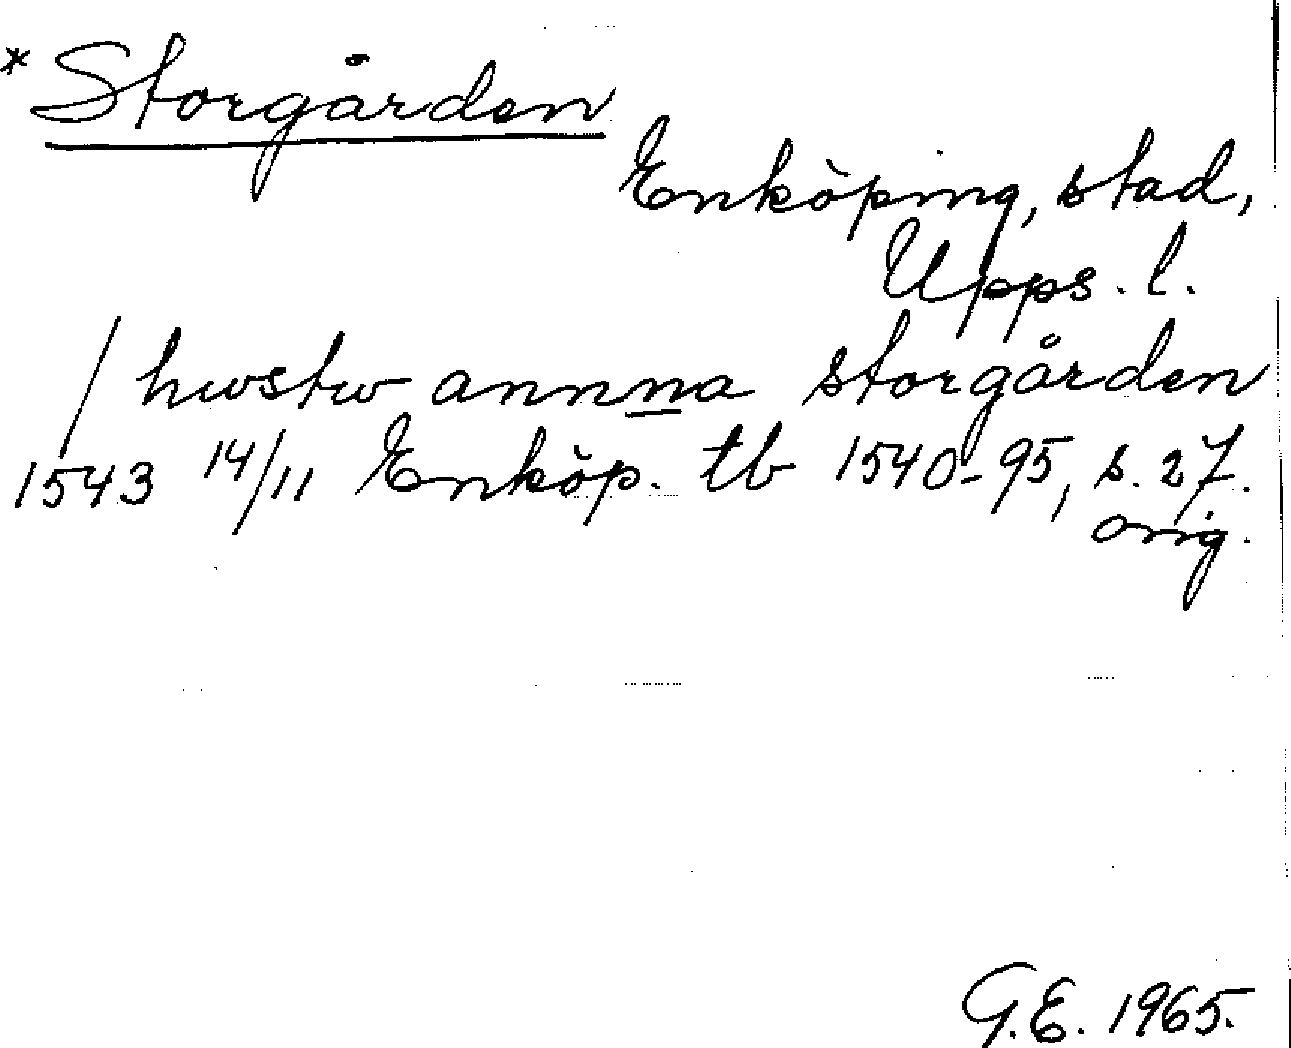 * Storgården
Enköping, stad,
Upps. l.
/ hwstw annna storgården
1543 14/11 Enköp. tb 1540-95, s. 27.
orig.
G.E. 1965.